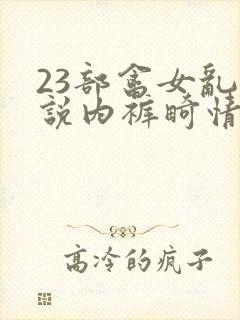 23部畜女乱
説内裤畸情
高冷的疯子